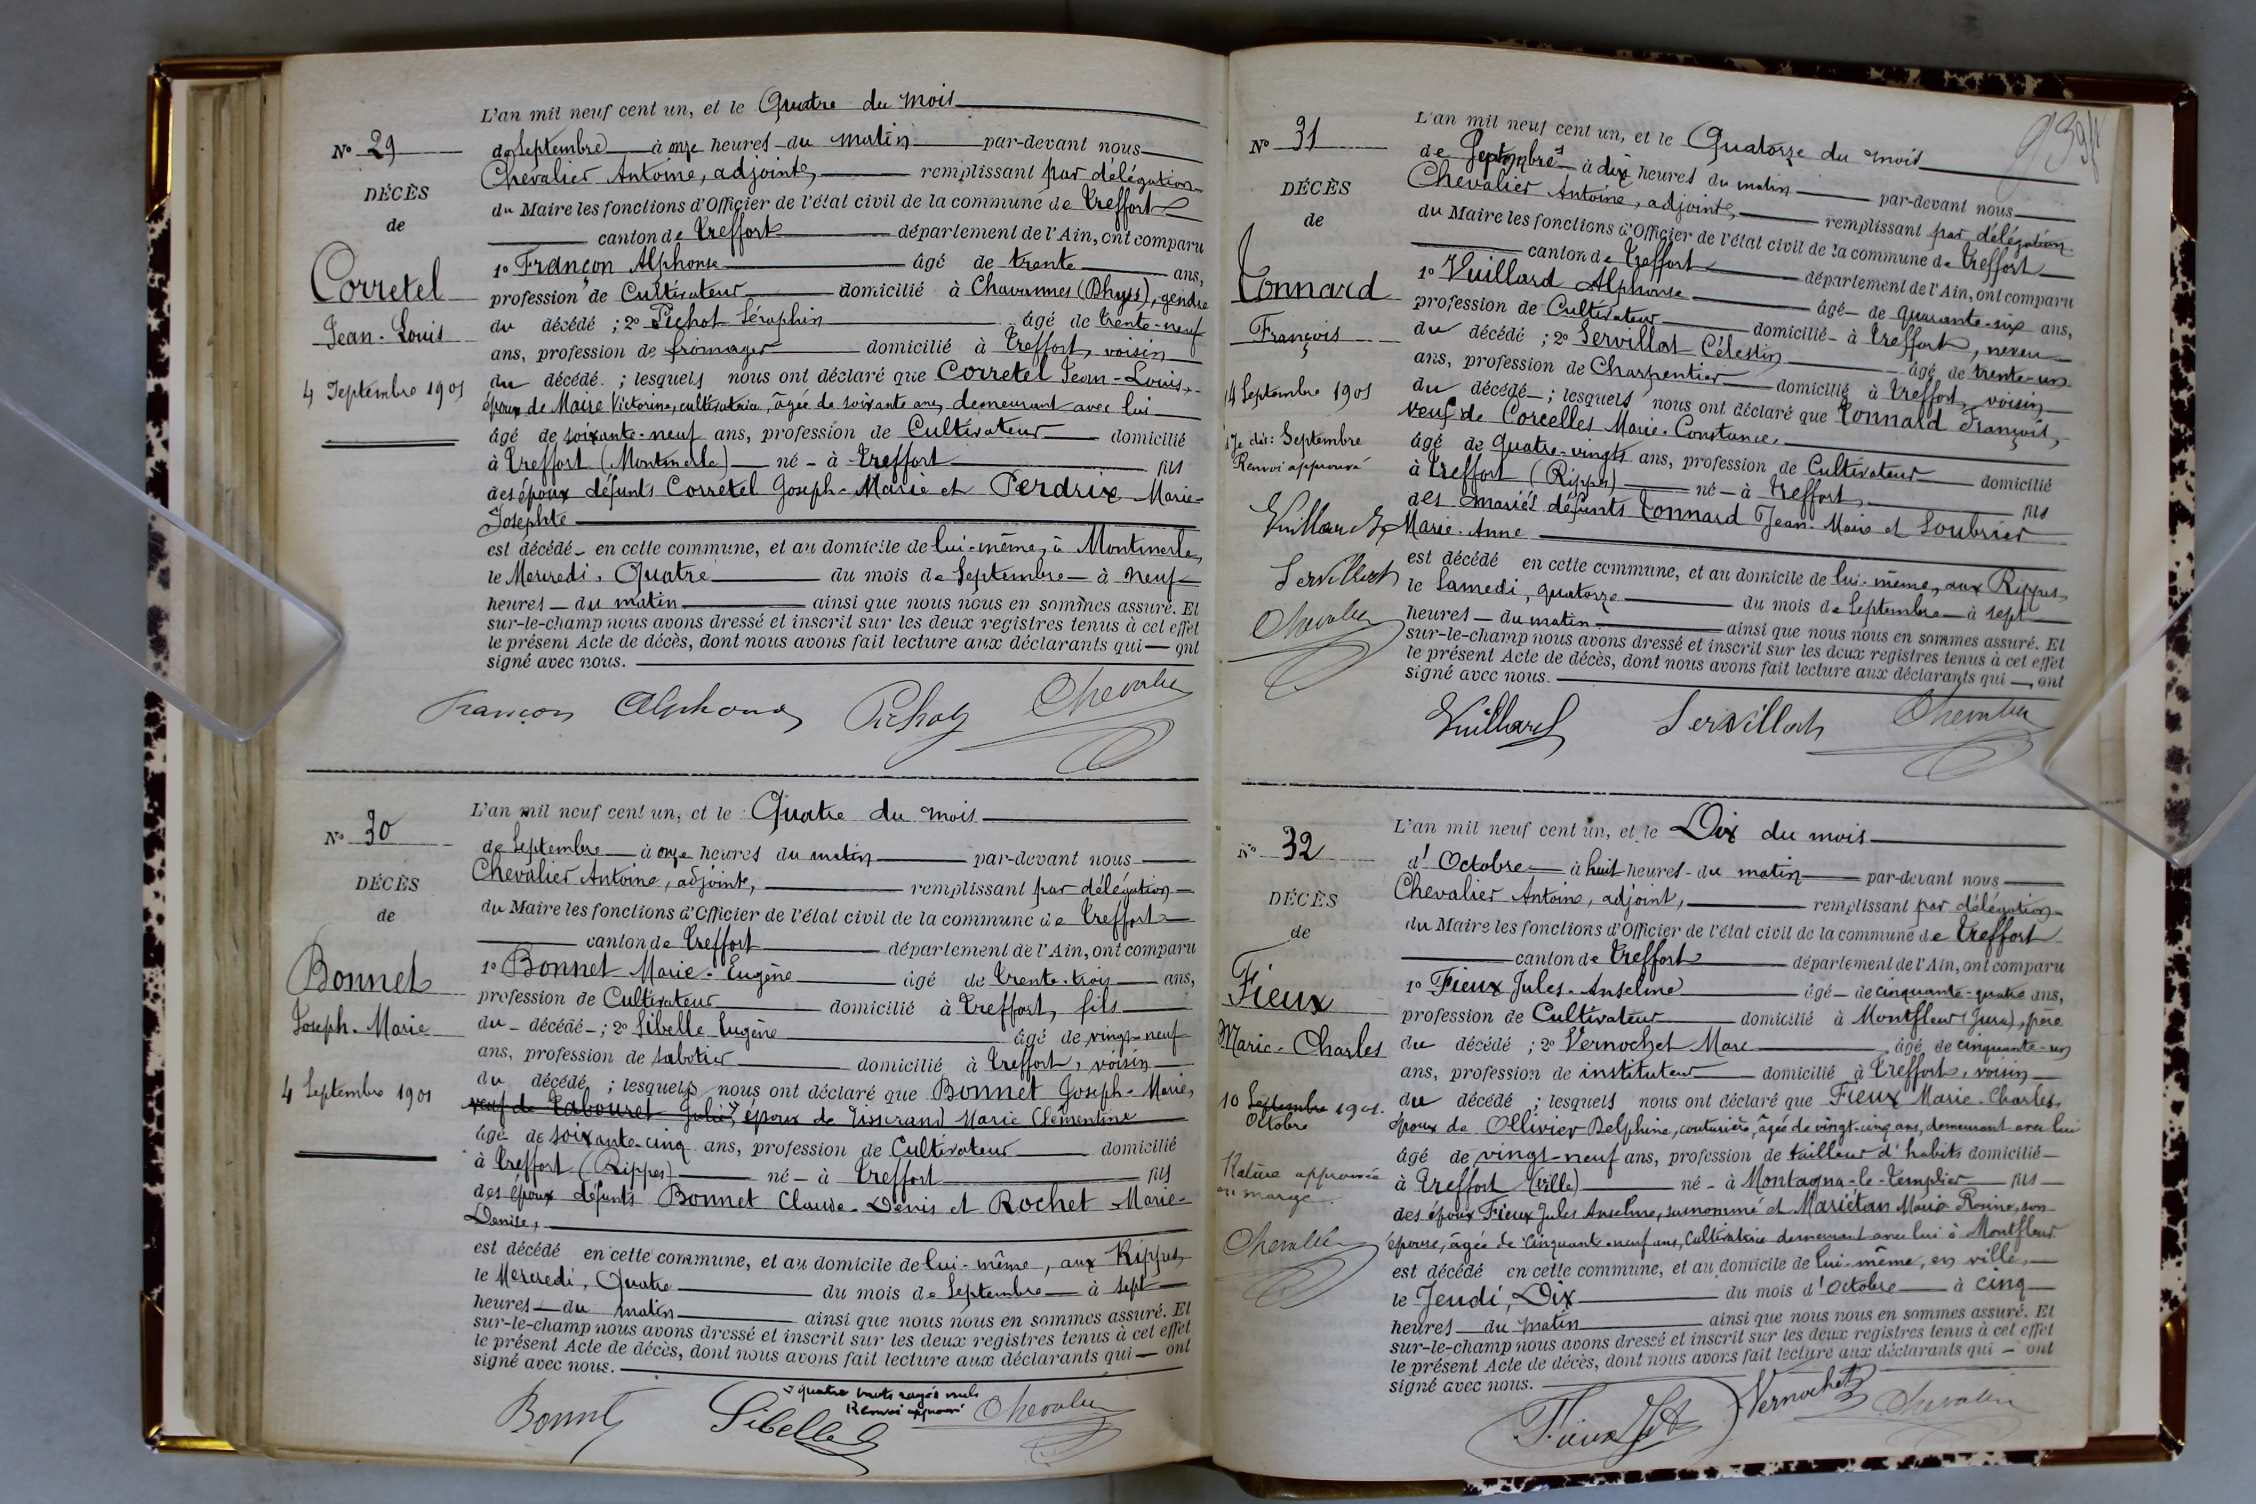 L'an mil neuf cent un, et le Quatre du mois
N° 29
de Septembre à onze heures du matin par-devant nous
Chevalier Antoine, adjoint, remplissant par délégation
DÉCÈS
du Maire les fonctions d'Officier de l'état civil de la commune de Treffort
de
canton de Treffort département de l'Ain, ont comparu
1° Françon Alphonse âgé de trente ans,
Corretel
profession de Cultivateur domicilié à Chavannes (Dhuys), gendre
Jean-Louis
du décédé ; 2° Pichot Séraphin âgé de trente-neuf
ans, profession de fromager domicilié à Treffort, voisin
4 Septembre 1901
du décédé ; lesquels nous ont déclaré que Corretel Jean-Louis,
époux de Maire Victorine, cultivatrice, âgée de soixante ans, demeurant avec lui
âgé de soixante-neuf ans, profession de Cultivateur domicilié
à Treffort (Montmerle) né à Treffort fils
des époux défunts Corretel Joseph-Marie et Perdrix Marie-
Josephte
est décédé en cette commune, et au domicile de lui-même, à Montmerle,
le Mercredi, Quatre du mois de Septembre à neuf
heures du matin ainsi que nous nous en sommes assuré. Et
sur-le-champ nous avons dressé et inscrit sur les deux registres tenus à cet effet
le présent Acte de décès, dont nous avons fait lecture aux déclarants qui ont
signé avec nous.
Françon Alphonse Pichot Chevalier
L'an mil neuf cent un, et le Quatre du mois
N° 30
de Septembre à onze heures du matin par-devant nous
Chevalier Antoine, adjoint, remplissant par délégation
DÉCÈS
du Maire les fonctions d'Officier de l'état civil de la commune de Treffort
de
canton de Treffort département de l'Ain, ont comparu
1° Bonnet Marie-Eugène âgé de trente-trois ans,
Bonnet
profession de Cultivateur domicilié à Treffort, fils
Joseph-Marie
du décédé ; 2° Sibelle Eugène âgé de vingt-neuf
ans, profession de sabotier domicilié à Treffort, voisin
4 Septembre 1901
du décédé ; lesquels nous ont déclaré que Bonnet Joseph-Marie,
veuf de Tabouret Julie, époux de Tisserand Marie Clémentine
âgé de soixante-cinq ans, profession de Cultivateur domicilié
à Treffort (Rippes) né à Treffort fils
des époux défunts Bonnet Claude-Denis et Rochet Marie-
Denise,
est décédé en cette commune, et au domicile de lui-même, aux Rippes,
le Mercredi, Quatre du mois de Septembre à sept
heures du matin ainsi que nous nous en sommes assuré. Et
sur-le-champ nous avons dressé et inscrit sur les deux registres tenus à cet effet
le présent Acte de décès, dont nous avons fait lecture aux déclarants qui ont
signé avec nous.
quatre mots rayés nuls
Renvoi approuvé
Bonnet Sibelle Chevalier
L'an mil neuf cent un, et le Quatorze du mois
N° 31
de Septembre à dix heures du matin par-devant nous
Chevalier Antoine, adjoint, remplissant par délégation
DÉCÈS
du Maire les fonctions d'Officier de l'état civil de la commune de Treffort
de
canton de Treffort département de l'Ain, ont comparu
1° Vuillard Alphonse âgé de quarante-six ans,
Tonnard
profession de Cultivateur domicilié à Treffort, neveu
François
du décédé ; 2° Servillat Célestin âgé de trente-un
ans, profession de Charpentier domicilié à Treffort, voisin
14 Septembre 1901
du décédé ; lesquels nous ont déclaré que Tonnard François,
veuf de Corcelles Marie-Constance,
Septembre
Renvoi approuvé
âgé de quatre-vingts ans, profession de Cultivateur domicilié
à Treffort (Rippes) né à Treffort, fils
des mariés défunts Tonnard Jean-Marie et Soubrier
Vuillard
Marie-Anne
est décédé en cette commune, et au domicile de lui-même, aux Rippes,
Servillat
le Samedi, quatorze du mois de Septembre à sept
Chevalier
heures du matin ainsi que nous nous en sommes assuré. Et
sur-le-champ nous avons dressé et inscrit sur les deux registres tenus à cet effet
le présent Acte de décès, dont nous avons fait lecture aux déclarants qui ont
signé avec nous.
Vuillard Servillat Chevalier
L'an mil neuf cent un, et le Dix du mois
N° 32
d'Octobre à huit heures du matin par-devant nous
Chevalier Antoine, adjoint, remplissant par délégation
DÉCÈS
du Maire les fonctions d'Officier de l'état civil de la commune de Treffort
de
canton de Treffort département de l'Ain, ont comparu
1° Fieux Jules-Anselme âgé de cinquante-quatre ans,
Fieux
profession de Cultivateur domicilié à Montfleur (Jura), père
Marie-Charles
du décédé ; 2° Vernochet Marc âgé de cinquante-un
ans, profession de instituteur domicilié à Treffort, voisin
10 Septembre 1901.
Octobre
du décédé ; lesquels nous ont déclaré que Fieux Marie-Charles,
époux de Ollivier Delphine, couturière, âgée de vingt-cinq ans, demeurant avec lui
âgé de vingt-neuf ans, profession de tailleur d'habits domicilié
Rature approuvée
en marge
à Treffort (ville) né à Montagna-le-Templier fils
des époux Fieux Jules Anselme, susnommé et Mariétan Marie son
épouse, âgée de cinquante-neuf ans, Cultivatrice demeurant avec lui à Montfleur
Chevalier
est décédé en cette commune, et au domicile de lui-même, en ville,
le Jeudi, Dix du mois d'Octobre à cinq
heures du matin ainsi que nous nous en sommes assuré. Et
sur-le-champ nous avons dressé et inscrit sur les deux registres tenus à cet effet
le présent Acte de décès, dont nous avons fait lecture aux déclarants qui ont
signé avec nous.
Fieux Vernochet Chevalier